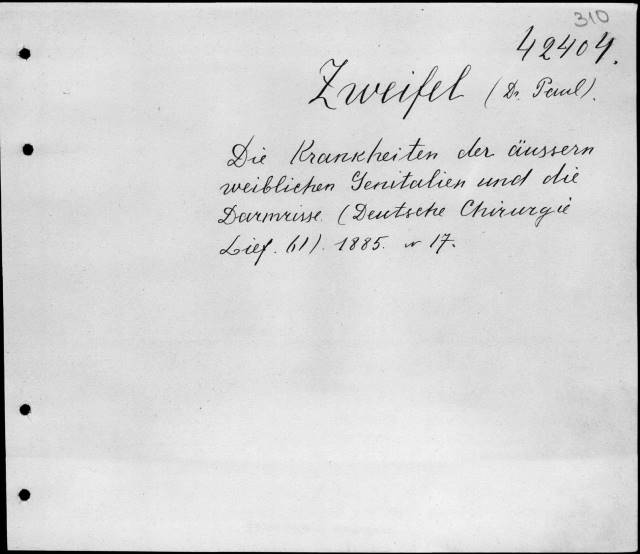 310
42404.
Zweifel (Dr. Paul).
Die Krankheiten der äussern
weiblichen Genitalien und die
Darmrisse. (Deutsche Chirurgie
Lief. 61). 1885. 17.